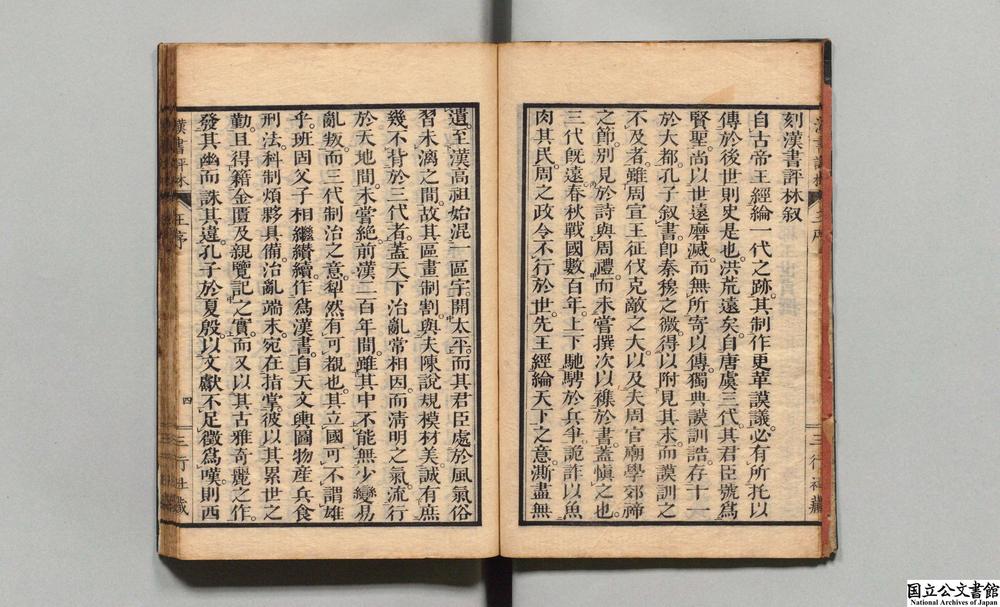 刻漢書評林叙
自古帝王經綸一代之跡其制作更革謨議必有所托以
傳於後世則史是也洪荒遠矣自唐虞三代其君臣號爲
賢聖尚以世遠磨滅而無所寄以傳獨典謨訓誥存十一
於大都孔子叙書卽秦穆之微得以附見其末而謨訓之
不及者雖周宣王征伐克敵之大以及夫周官廟學郊禘
之節別見於詩與周禮而未嘗撰次以襍於書蓋愼之也
三代旣遠春秋戰國數百年上下馳騁於兵爭詭詐以魚
肉其民周之政令不行於世先王經綸天下之意澌盡無
遺至漢高祖始混一區宇開太平而其君臣處於風氣俗
習未漓之間故其區畫制割與夫陳說規模材美誠有庶
幾不背於三代者蓋天下治亂常相因而淸明之氣流行
於天地間未嘗絶前漢二百年間雖其中不能無少變易
亂叛而三代制治之意犁然有可觀也其立國可不謂雄
乎班固父子相繼纘續作爲漢書自天文輿圖物産兵食
刑法科制煩夥具備治亂端末宛在指掌彼以其累世之
勤且得籍金匱及親覽記之實而又以其古雅奇麗之作
發其幽而誅其違孔子於夏殷以文獻不足徵爲嘆則西
漢書評林
王序
四
三行社藏
国立公文書館
National Archives of Japan